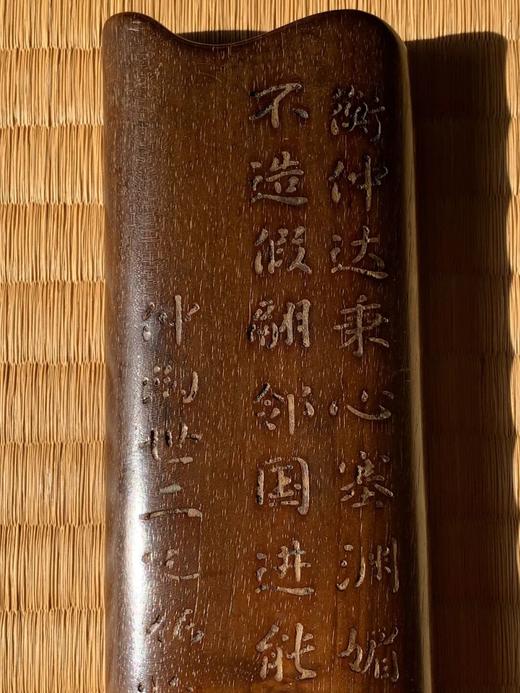 衡仲达秉心塞渊媚
不造假翮邻国进能
世二兄